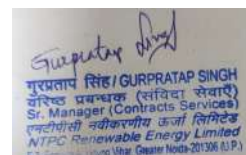 Gurpratap Singh
गुरप्रताप सिंह/GURPRATAP SINGH
वरिष्ठ प्रबन्धक (संविदा सेवाएँ)
Sr. Manager (Contracts Services)
एनटीपीसी नवीकरणीय ऊर्जा लिमिटेड
NTPC Renewable Energy Limited
Vihar, Greater Noida-201306 (U.P.)